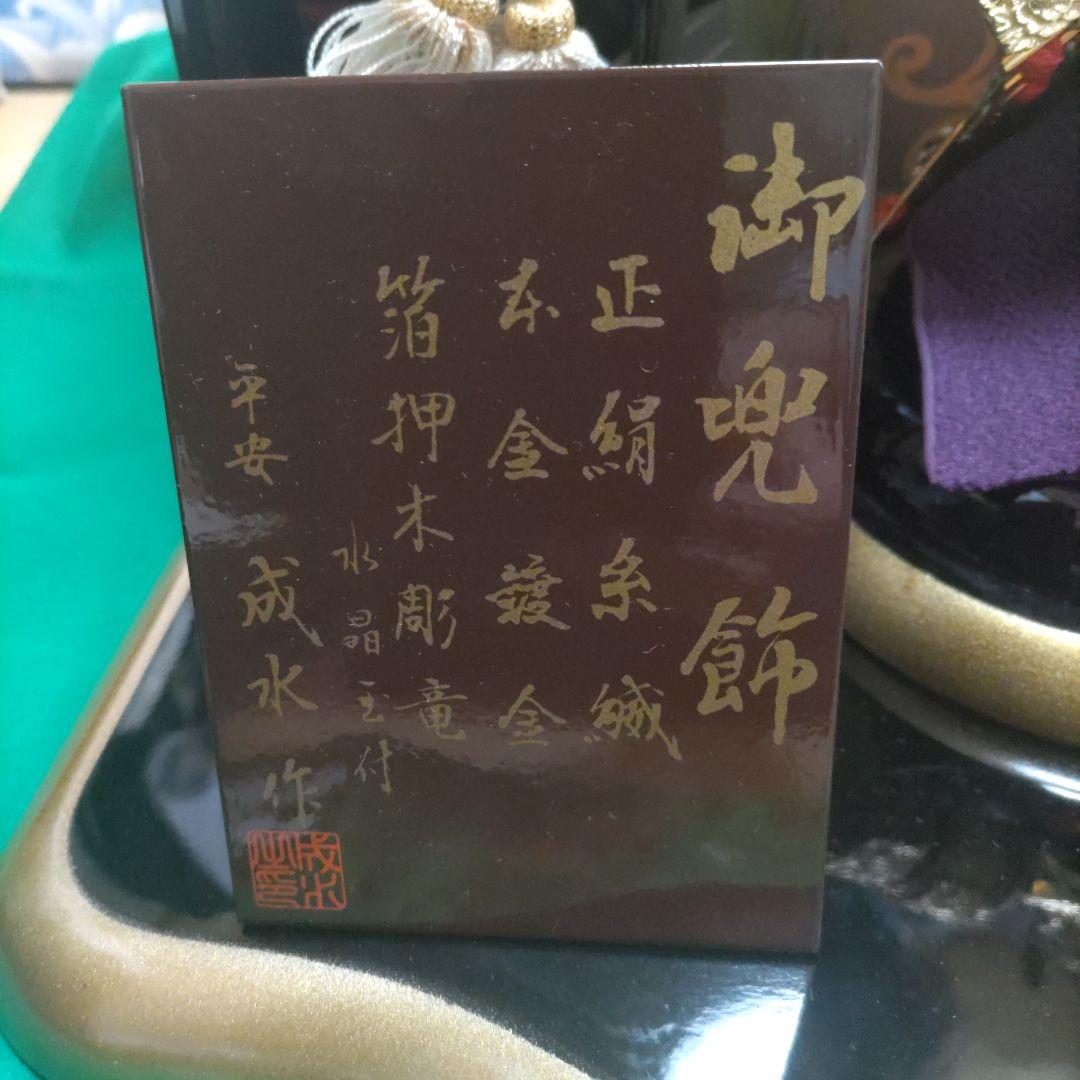 御兜飾
正絹糸縅
本金鍍金
箔押木彫竜
水晶玉付
平安 成水作
成水之印